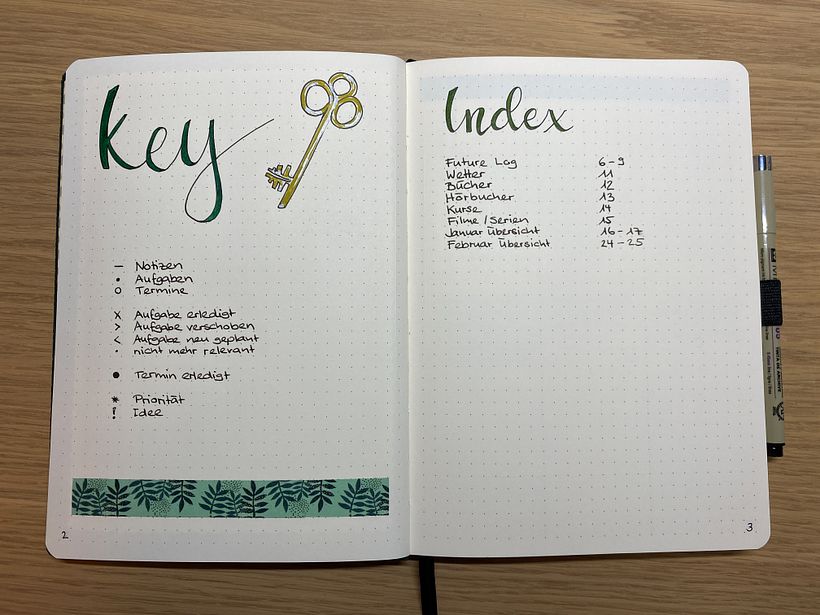 Key
– Notizen
• Aufgaben
o Termine
x Aufgabe erledigt
> Aufgabe verschoben
< Aufgabe neu geplant
· nicht mehr relevant
● Termin erledigt
* Priorität
! Idee
2
Index
Future Log 6-9
Wetter 11
Bücher 12
Hörbücher 13
Kurse 14
Filme/Serien 15
Januar Übersicht 16-17
Februar Übersicht 24-25
3